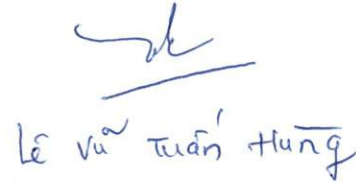 Lê Vũ Tuấn Hùng